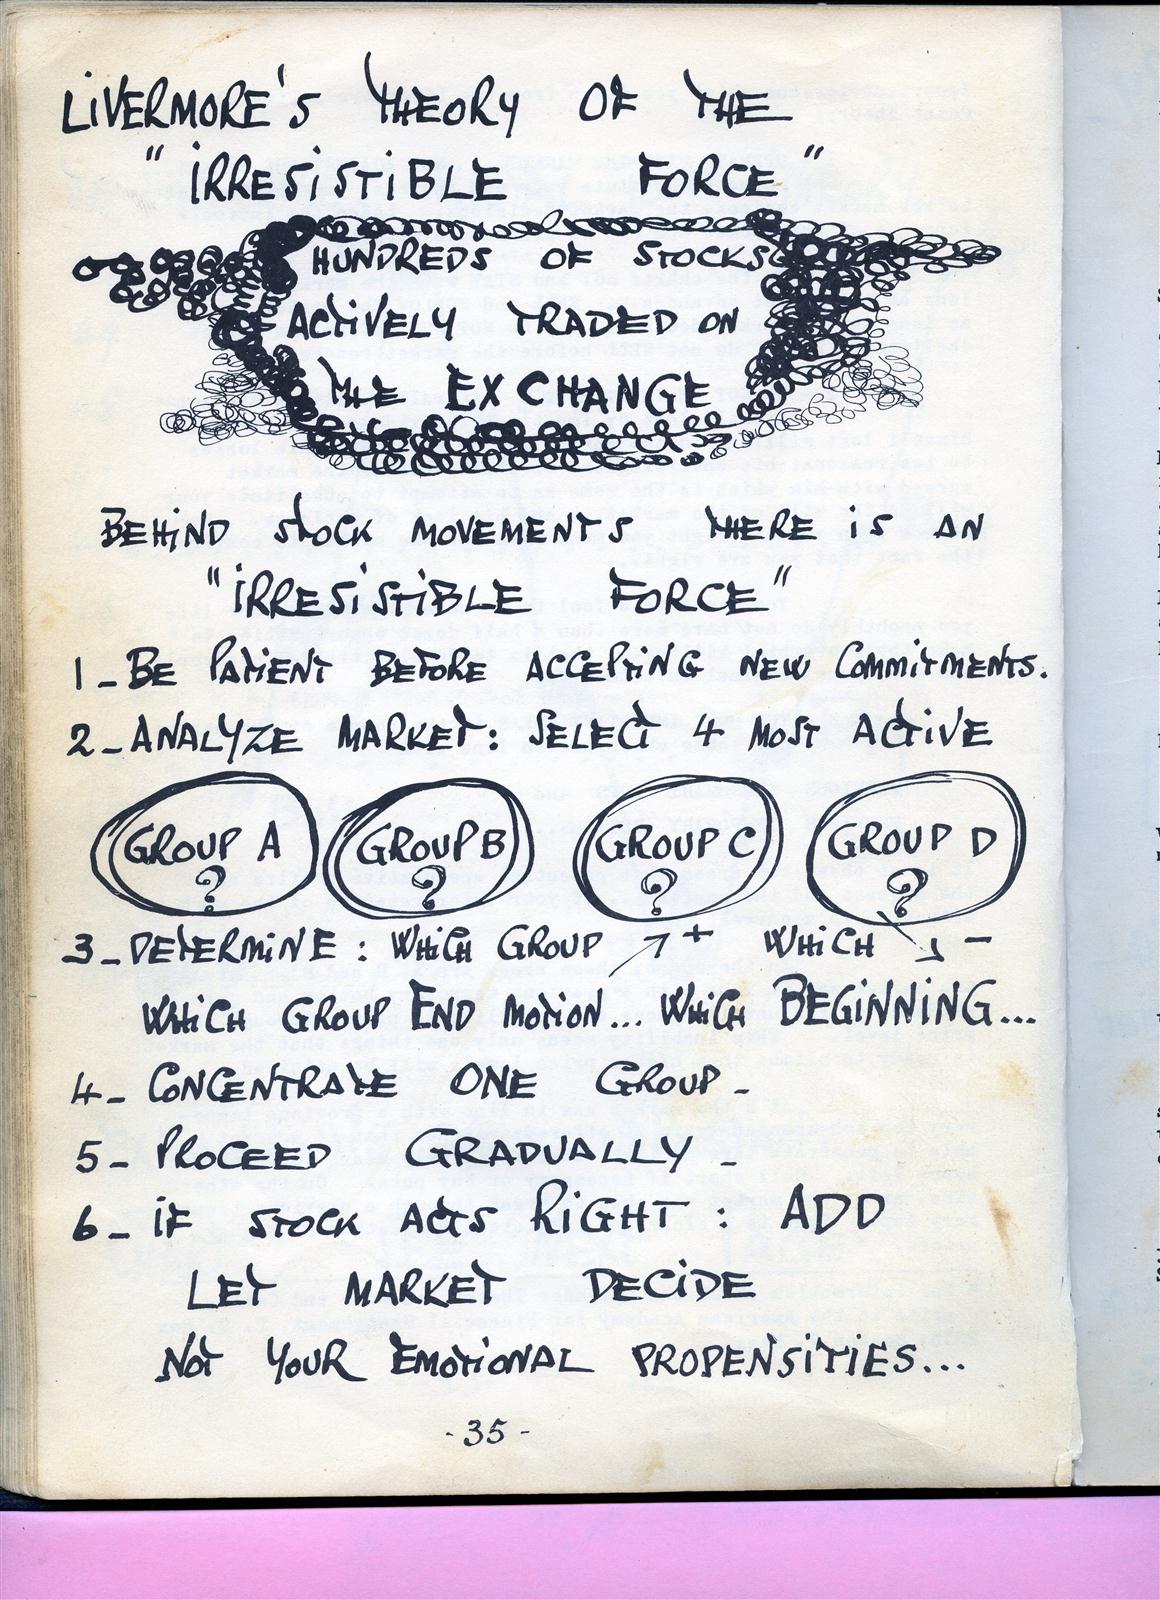 LIVERMORE'S THEORY OF THE
"IRRESISTIBLE FORCE"
HUNDREDS OF STOCKS
ACTIVELY TRADED ON
THE EXCHANGE
BEHIND STOCK MOVEMENTS THERE IS AN
"IRRESISTIBLE FORCE"
1_ BE PATIENT BEFORE ACCEPTING NEW COMMITMENTS.
2_ ANALYZE MARKET: SELECT 4 MOST ACTIVE
GROUP A ? GROUP B ? GROUP C ? GROUP D ?
3_ DETERMINE: WHICH GROUP ↗ + WHICH ↘ -
WHICH GROUP END MOTION... WHICH BEGINNING...
4_ CONCENTRATE ONE GROUP_
5_ PROCEED GRADUALLY_
6_ IF STOCK ACTS RIGHT: ADD
LET MARKET DECIDE
NOT YOUR EMOTIONAL PROPENSITIES...
-35-